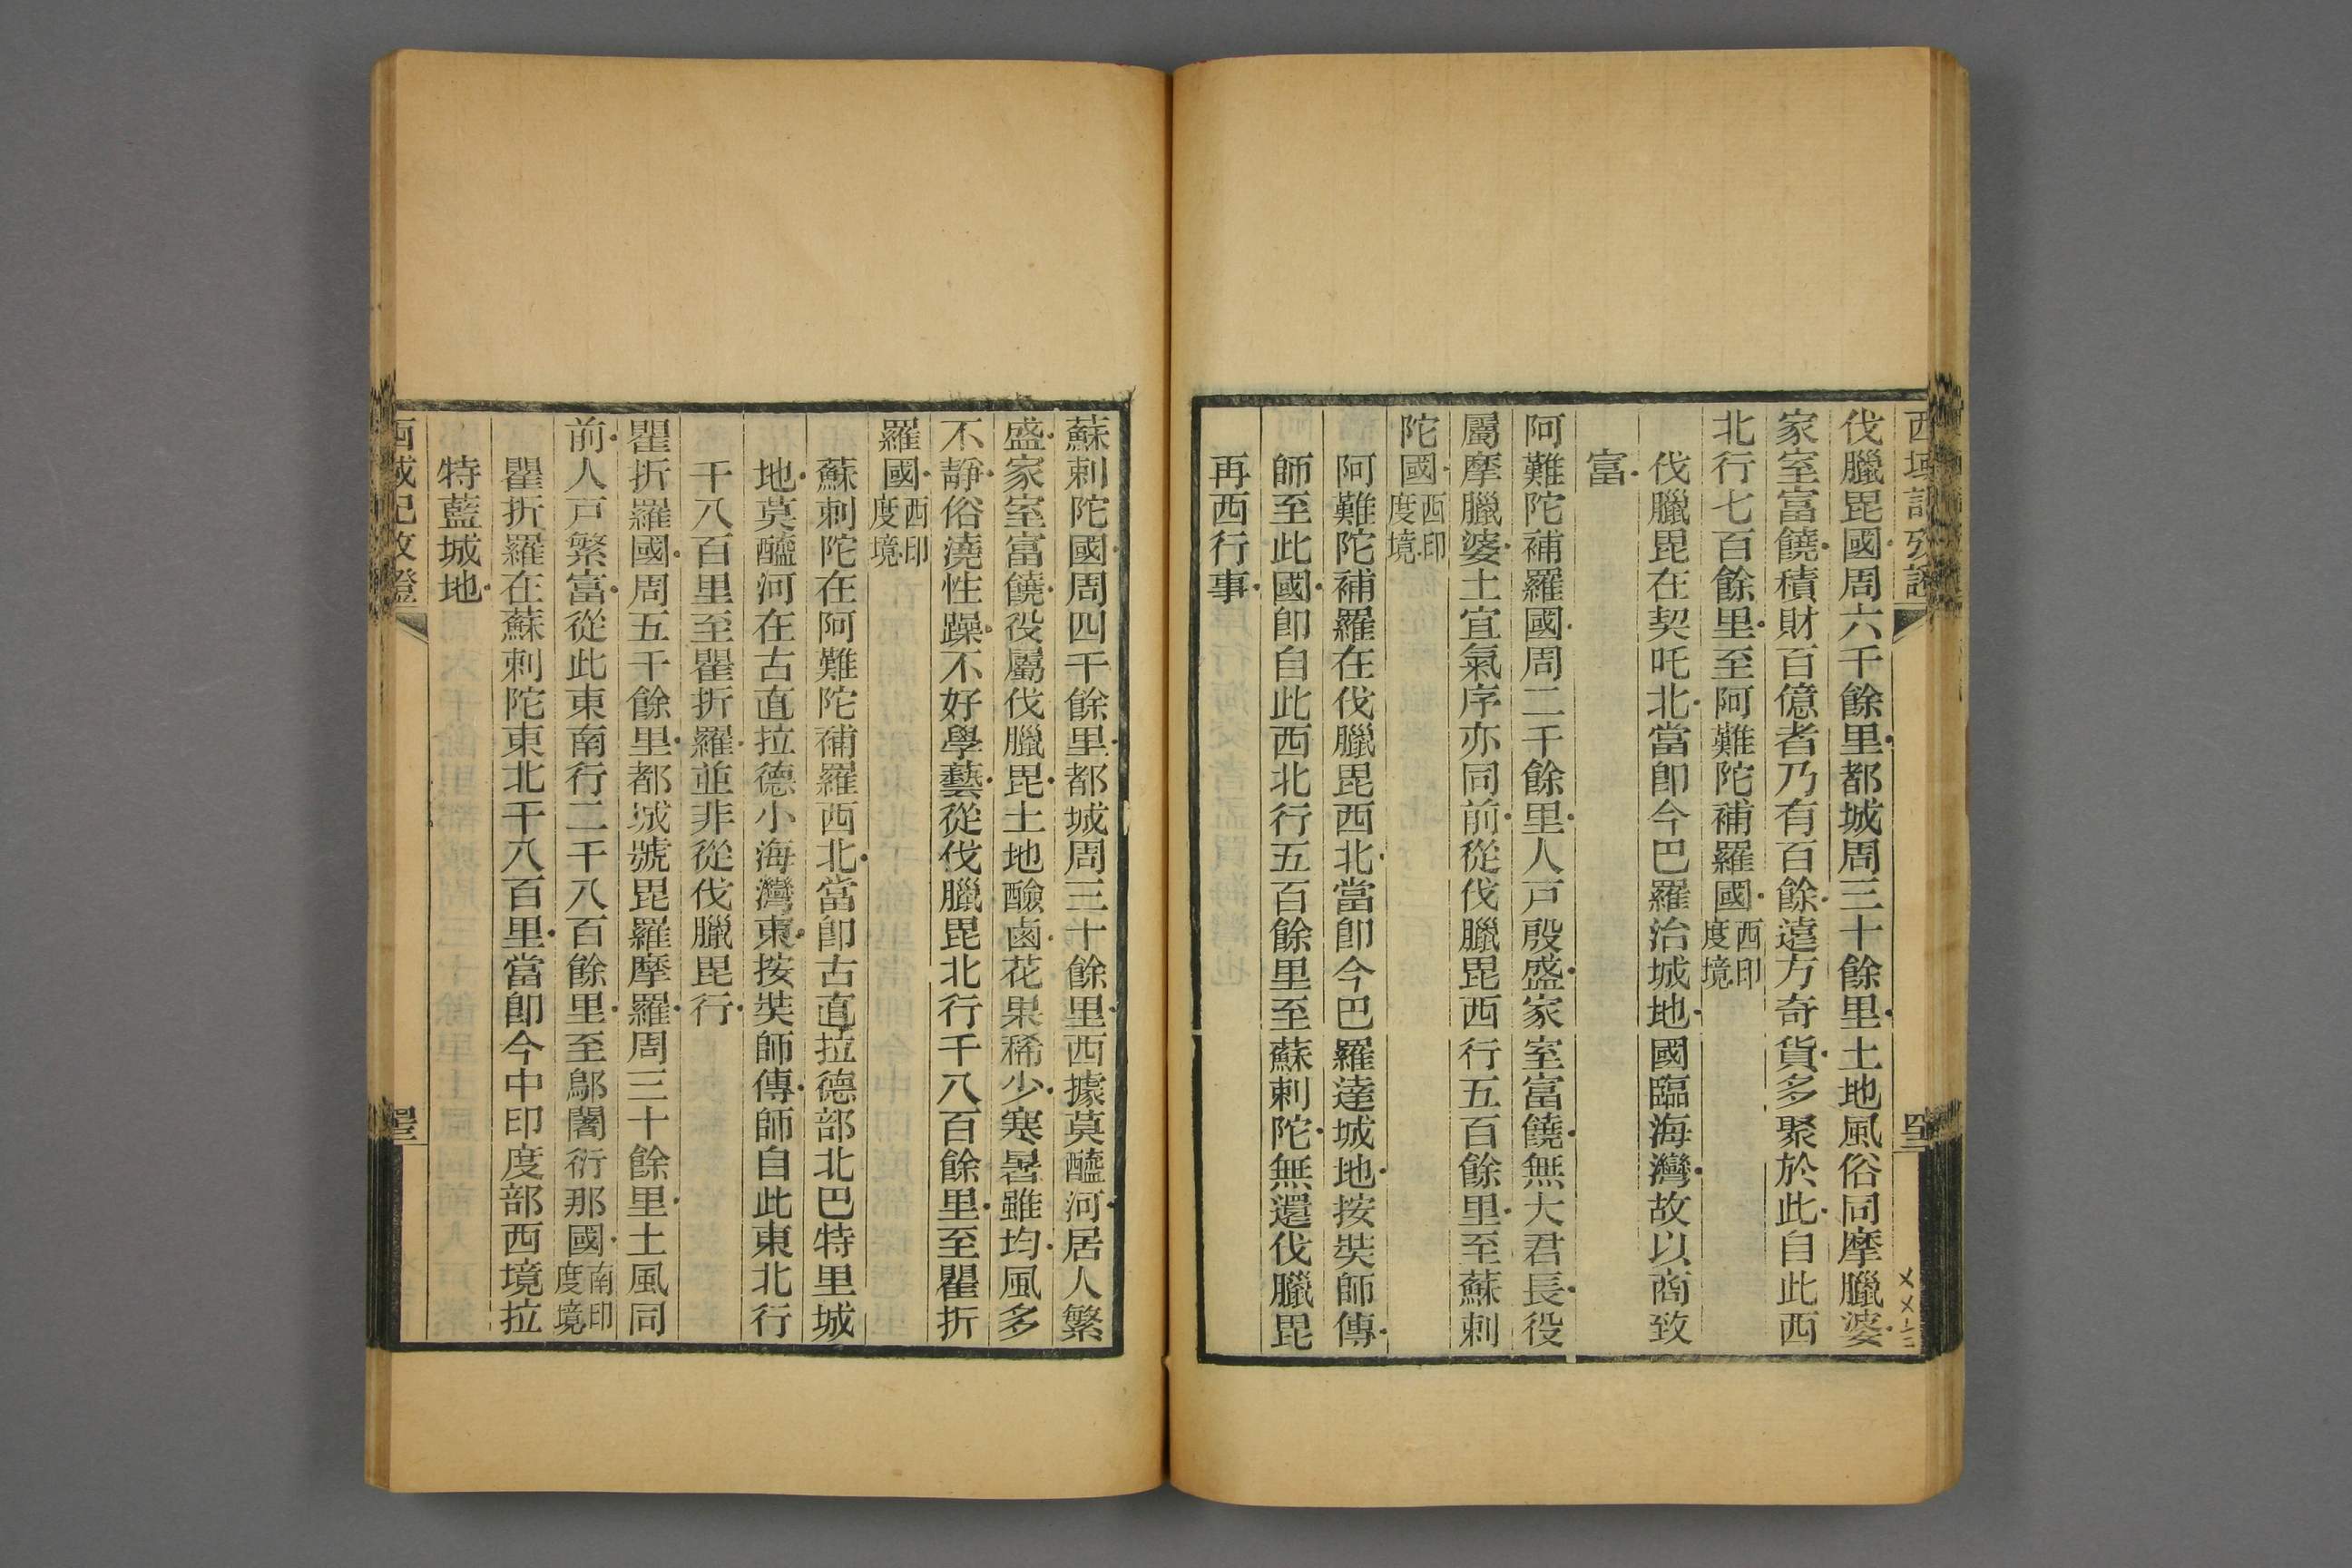 伐臘毘國周六千餘里都城周三十餘里土地風俗同摩臘婆
家室富饒積財百億者乃有百餘遠方奇貨多聚於此自此西
北行七百餘里至阿難陀補羅國西印度境
伐臘毘在契吒北當卽今巴羅治城地國臨海灣故以商致
富
阿難陀補羅國周二千餘里人戸殷盛家室富饒無大君長役
屬摩臘婆土宜氣序亦同前從伐臘毘西行五百餘里至蘇剌
陀國西印度境
阿難陀補羅在伐臘毘西北當卽今巴羅達城地按奘師傳
師至此國卽自此西北行五百餘里至蘇剌陀無還伐臘毘
再西行事
蘇剌陀國周四千餘里都城周三十餘里西據莫醯河居人繁
盛家室富饒役屬伐臘毘土地鹼鹵花果稀少寒暑雖均風多
不靜俗澆性躁不好學藝從伐臘毘北行千八百餘里至瞿折
羅國西印度境
蘇剌陀在阿難陀補羅西北當卽古直拉德部北巴特里城
地莫醯河在古直拉德小海灣東按奘師傳師自此東北行
千八百里至瞿折羅並非從伐臘毘行
瞿折羅國周五千餘里都城號毘羅摩羅周三十餘里土風同
前人戸繁富從此東南行二千八百餘里至鄔闍衍那國南印度境
瞿折羅在蘇剌陀東北千八百里當卽今中印度部西境拉
特藍城地
西域記攷證